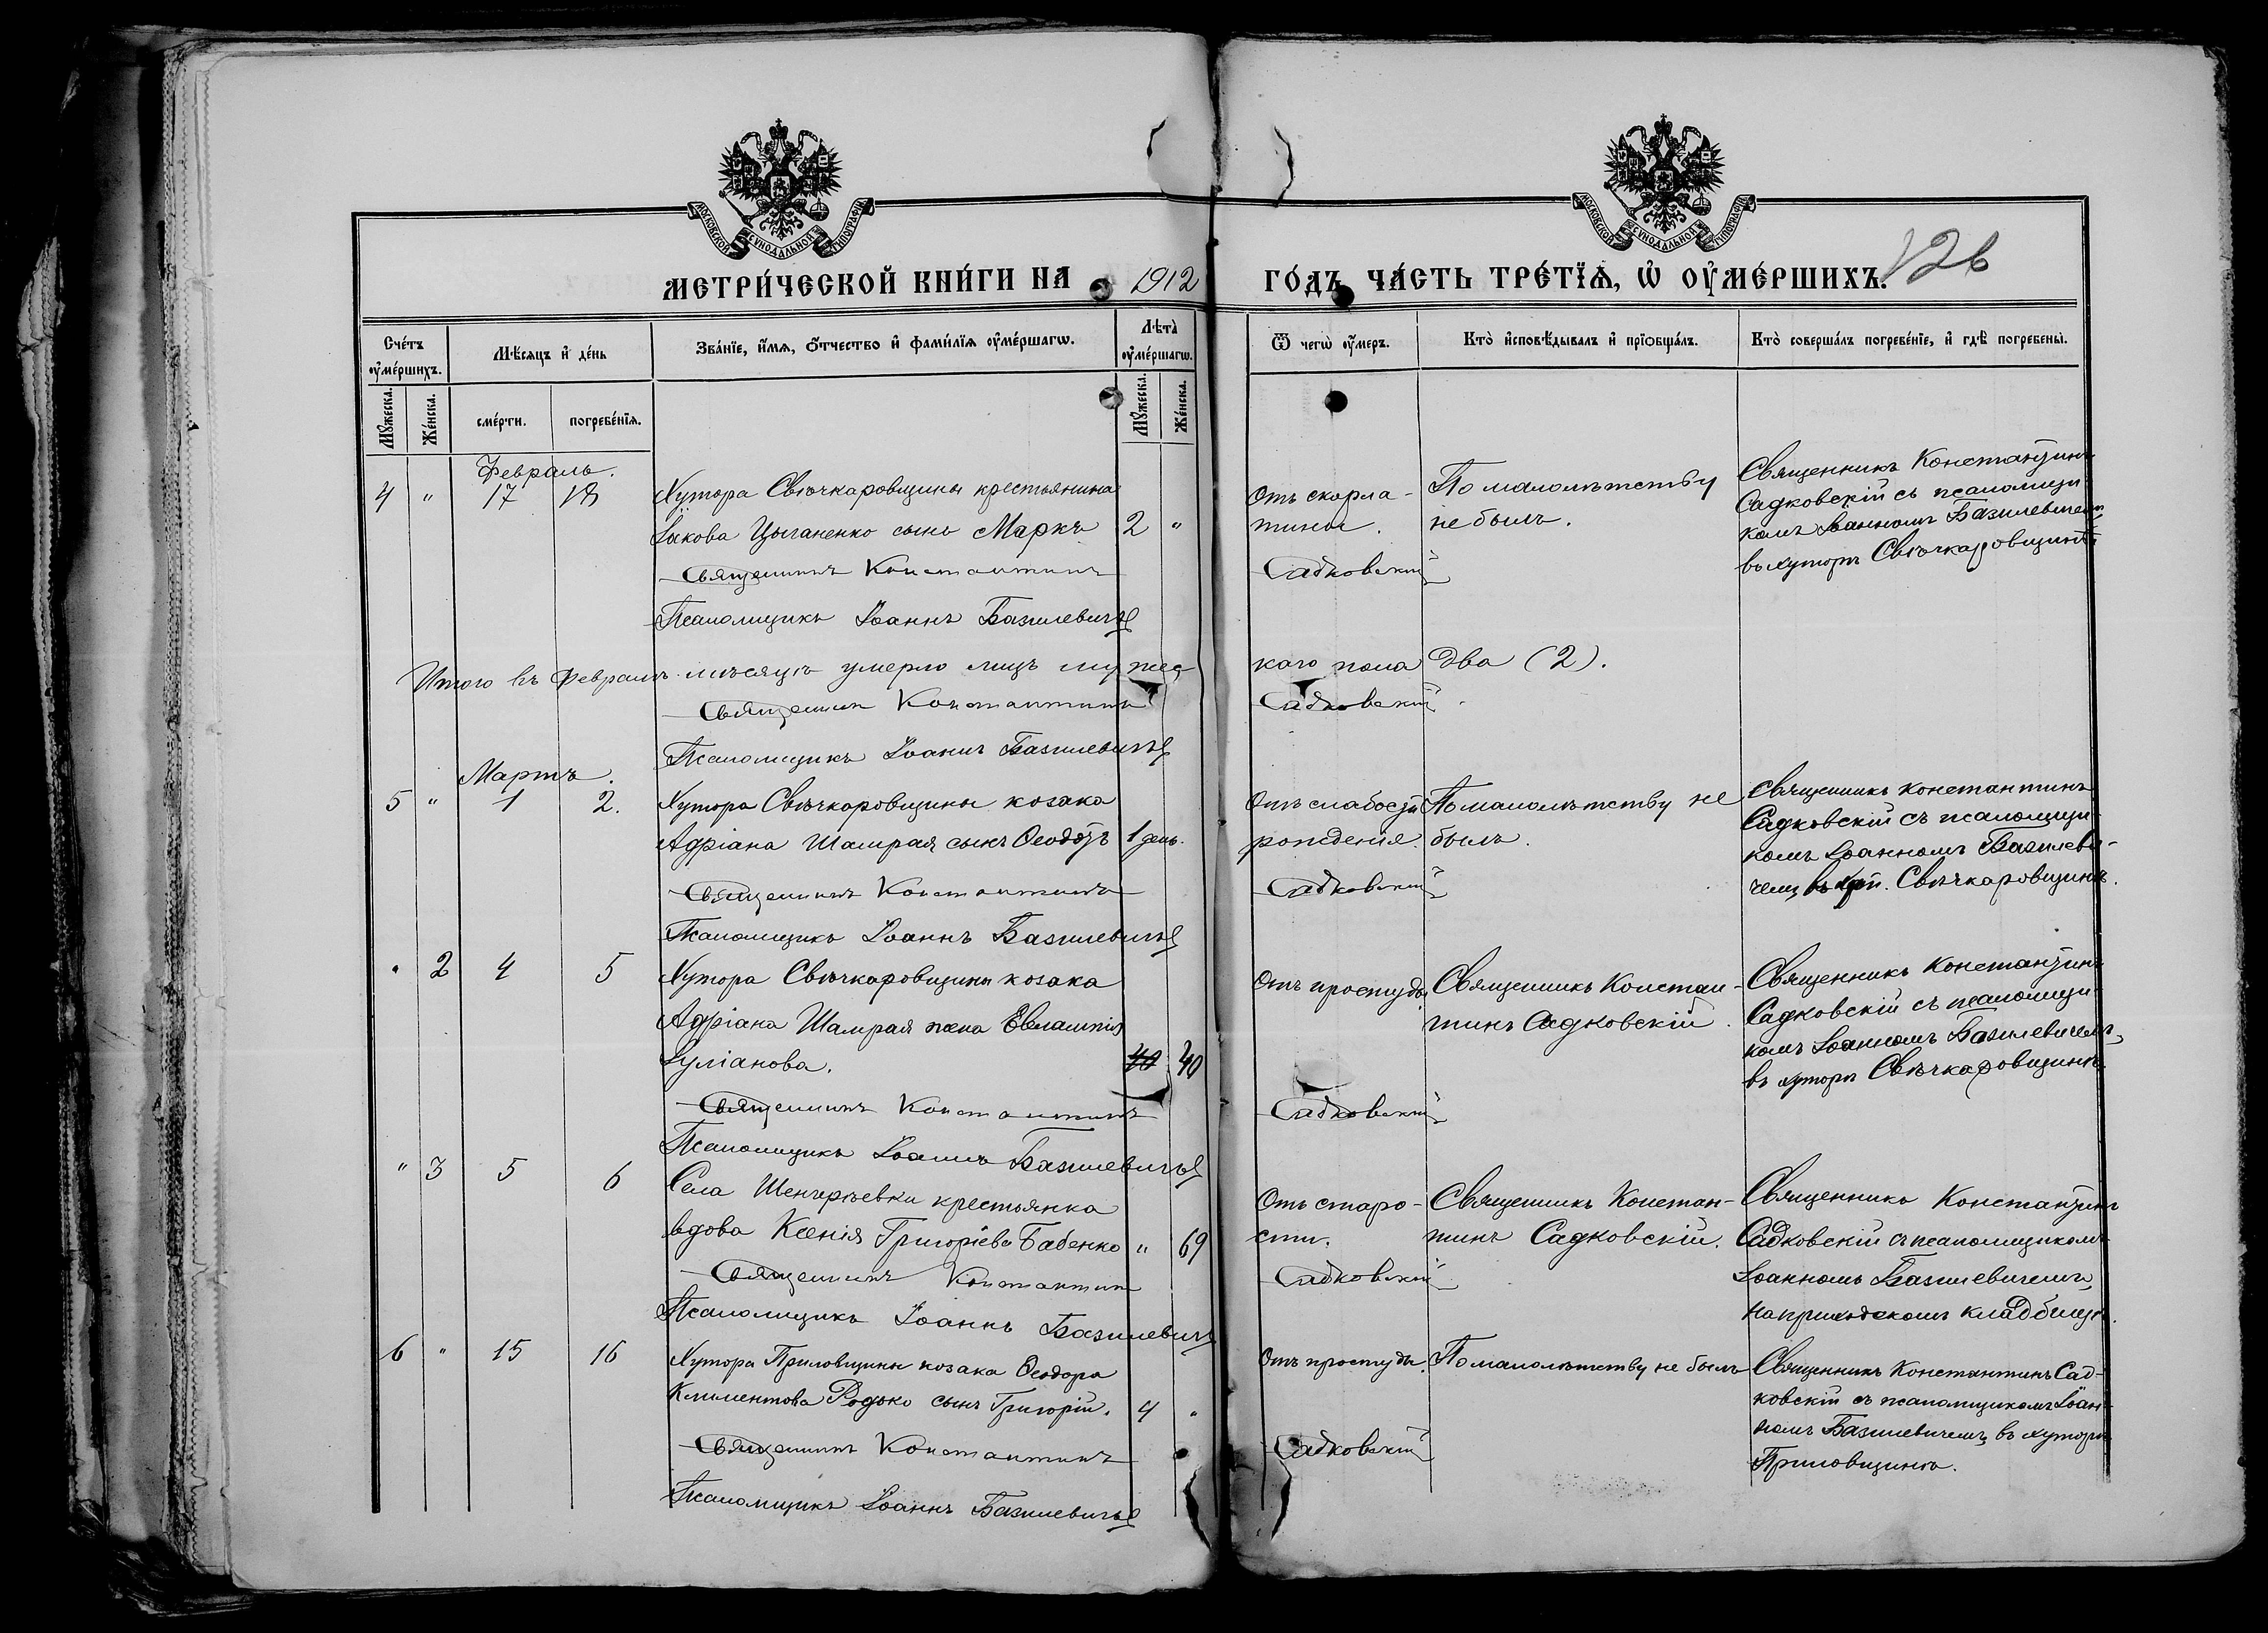 МОСКОВСКОЙ СѴНОДАЛЬНОЙ ТИПОГРАФІИ
МОСКОВСКОЙ СѴНОДАЛЬНОЙ ТИПОГРАФІИ
126
МЕТРИ́ЧЕСКОЙ КНИ́ГИ НА 1912 ГО́ДЪ, ЧА́СТЬ ТРЕ́ТЇѦ, Ѡ҆ ОУ҆МЕ́РШИХЪ.
Сче́тъ оу҆ме́ршихъ.
Мѣ́сяцъ и҆ де́нь
Зва́нїе, и҆́мѧ, ѻ҆́тчество и҆ фами́лїѧ оу҆ме́ршагѡ.
Лѣ́та̀ оу҆ме́ршагѡ.
Ѿ чегѡ̀ оу҆́меръ.
Кто̀ и҆сповѣ́дывалъ и҆ прїѡбща́лъ.
Кто̀ соверша́лъ погребе́нїе, и҆ гдѣ̀ погребены̀.
Мꙋ́жеска.
Же́нска.
сме́рти.
погребе́нїѧ.
Мꙋ́жеска.
Же́нска.
Февраль.
4 " 17 18 Хутора Свѣчкаровщины крестьянина
Іакова Цыганенко сынъ Маркъ 2 "
Отъ скарла-
тины.
По малолѣтству
не былъ.
Священникъ Константинъ
Садковскій съ псаломщи
комъ Іоанномъ Базилевичемъ,
въ хуторѣ Свѣчкаровщинѣ
Священникъ Константинъ Садковскій
Псаломщикъ Іоаннъ Базилевичъ
Итого въ Февралѣ мѣсяцѣ умерло лицъ мужес
каго пола два (2).
Священникъ Константинъ Садковскій
Псаломщикъ Іоаннъ Базилевичъ
Мартъ.
5 " 1 2. Хутора Свѣчкаровщины козака
Адріана Шамрая сынъ Ѳеодотъ 1 день.
Отъ слабости
рожденія.
По малолѣтству не
былъ.
Священникъ Константинъ
Садковскій съ псаломщи-
комъ Іоанномъ Базилеви-
чемъ, въ хут. Свѣчкаровщинѣ.
Священникъ Константинъ Садковскій
Псаломщикъ Іоаннъ Базилевичъ
" 2 4 5 Хутора Свѣчкаровщины козака
Адріана Шамрая жена Евлампія
Іуліанова. 40 40
Отъ простуды
Священникъ Констан-
тинъ Садковскій.
Священникъ Константинъ
Садковскій съ псаломщи
комъ Іоанномъ Базилевичемъ,
въ хуторѣ Свѣчкаровщинѣ.
Священникъ Константинъ Садковскій
Псаломщикъ Іоаннъ Базилевичъ
" 3 5 6 Села крестьянка
вдова Ксенія Григоріева Бабенко " 69
Отъ старо-
сти.
Священникъ Констан-
тинъ Садковскій.
Священникъ Константинъ
Садковскій съ псаломщикомъ
Іоанномъ Базилевичемъ,
на приходскомъ кладбищѣ.
Священникъ Константинъ Садковскій
Псаломщикъ Іоаннъ Базилевичъ
6 " 15 16 Хутора Приловщины козака Ѳеодора
Климентова Родько сынъ Григорій. 4 "
Отъ простуды.
По малолѣтству не былъ
Священникъ Константинъ Сад-
ковскій съ псаломщикомъ Іоан-
номъ Базилевичемъ, въ хуторѣ
Приловщинѣ.
Священникъ Константинъ Садковскій
Псаломщикъ Іоаннъ Базилевичъ